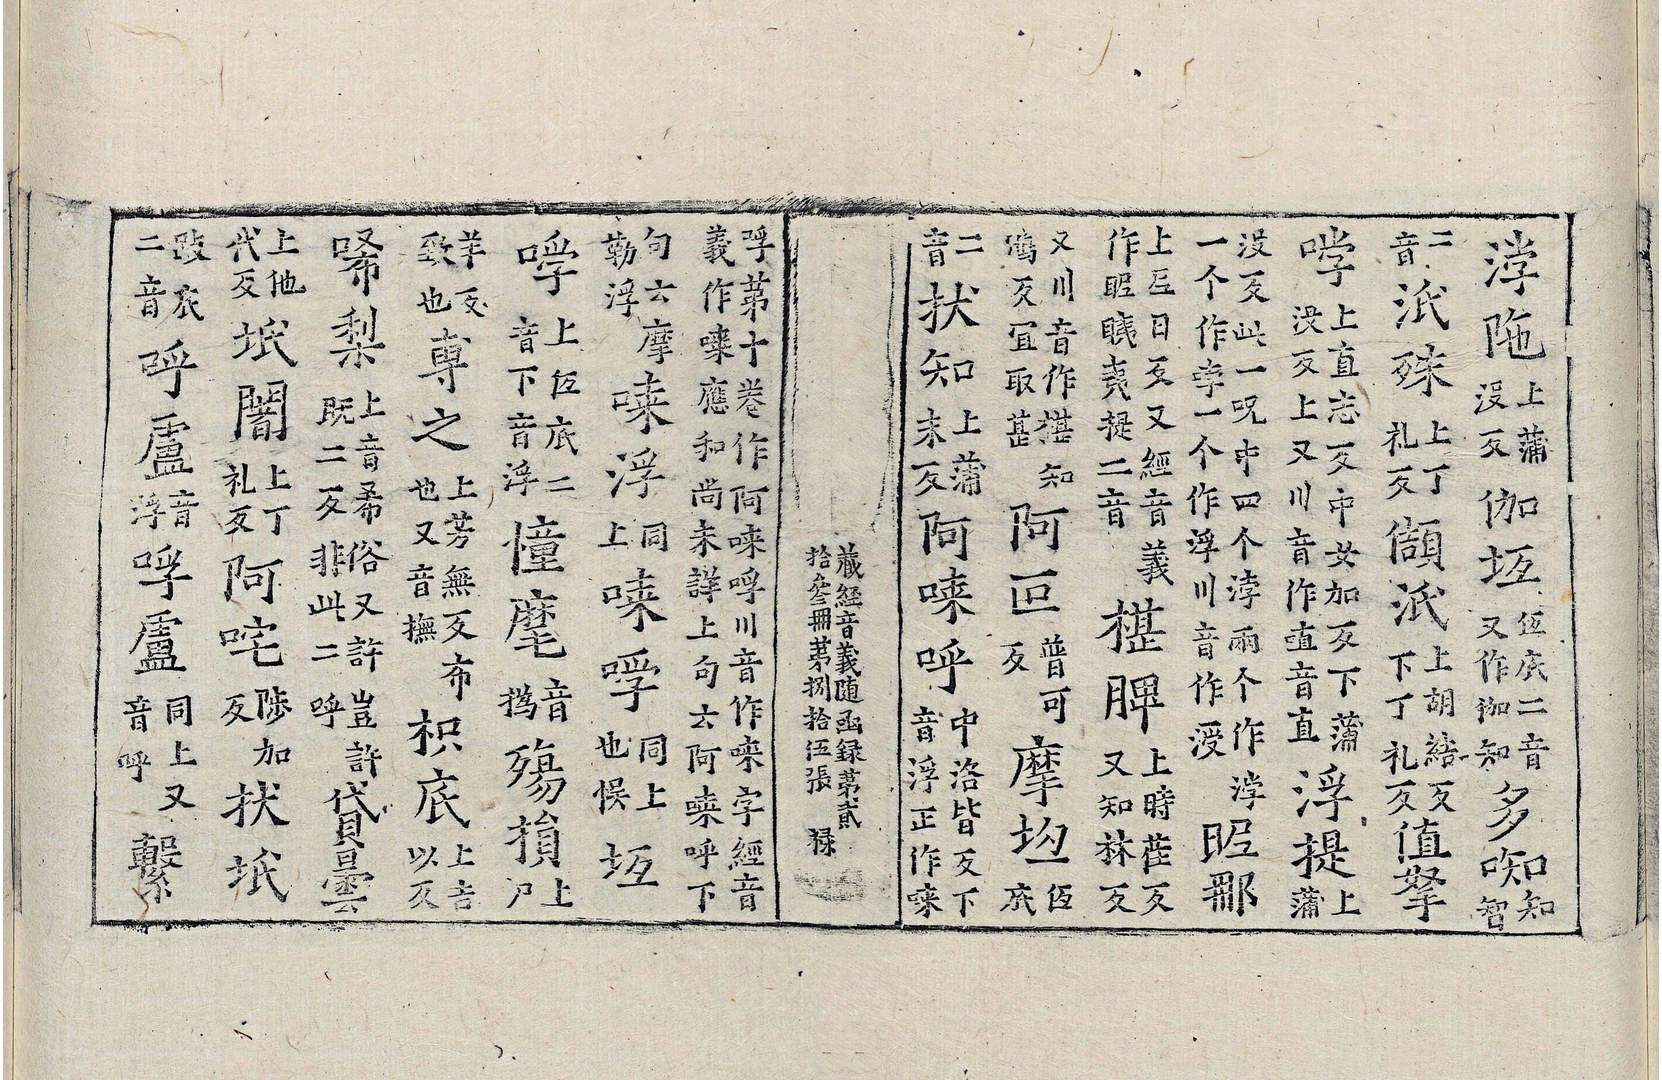 浡陁上蒲没反伽坘伍底二音又作伽知多𠯗知知智
二音泜殊上丁礼反儨泜上胡結反下丁礼反值拏
㖀上直志反中女加反下蒲没反上又川音作直音直浮提上蒲
没反此一呪中四个浡兩个作浡一个作孛一个作浮川音作浸昵那
上尼日反又經音義作昵䀢夷提二音椹脾上時荏反又知林反
又川音作椹知鴆反冝取甚阿叵普可反摩坘伍底
二音扙知上蒲末反阿唻呼中洛皆反下音浮正作唻
藏經音義随函録第貳
拾叁冊第捌拾伍張 禄
呼第十卷作阿唻呼川音作唻字經音義作㖨應和尚未詳上句云阿㖨呼下
句云摩勒浮唻浮同上唻㖀同上也悮坘
㖀上伍底二音下音浮憧麾音撝殤損上尸
羊反致也専之上芳無反布也又音撫枳底上吉以反
唏梨上音希俗又許既二反非此二呼豈許貸曇
上他代反坻闍上丁礼反阿咤陟加反扙坻
跋底二音呼盧音浮㖀盧同上又音呼繫